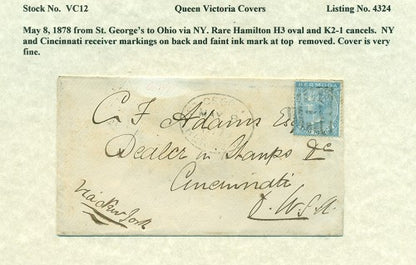 Stock No. VC12 Queen Victoria Covers Listing No. 4324
May 8, 1878 from St. George's to Ohio via NY. Rare Hamilton H3 oval and K2-1 cancels. NY
and Cincinnati receiver markings on back and faint ink mark at top removed. Cover is very
fine.
BERMUDA
MAY
C F Adams Esq
Dealer in Stamps &c
Cincinnati
U.S.A.
via New York